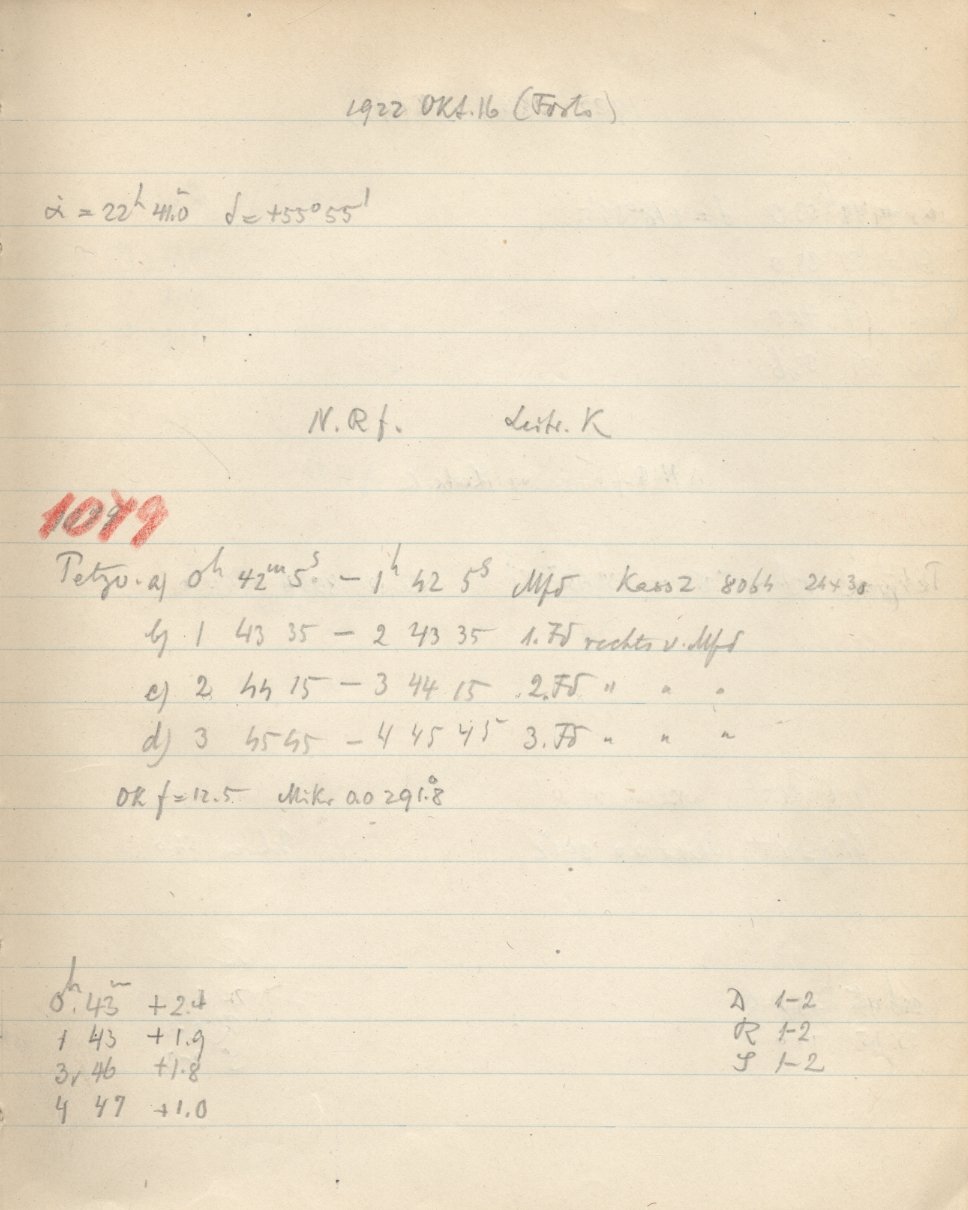 1922 Okt. 16 (Forts)
α = 22h 41.0m δ = +55° 55'
N. Rf. Leitr. K
1079
Petzv. a) 0h 42m 5s – 1h 42 5s Mfd Kass 2 8064 24×30
b) 1 43 35 – 2 43 35 1. Fd rechts v. Mfd
c) 2 44 15 – 3 44 15 2. Fd " " "
d) 3 45 45 – 4 45 45 3. Fd " " "
OK f = 12.5 Mikr 0.0 291.8°
0h. 43m +2.4
1 43 +1.9
3, 46 +1.8
4 47 +1.0
D 1–2
R 1–2
S 1–2